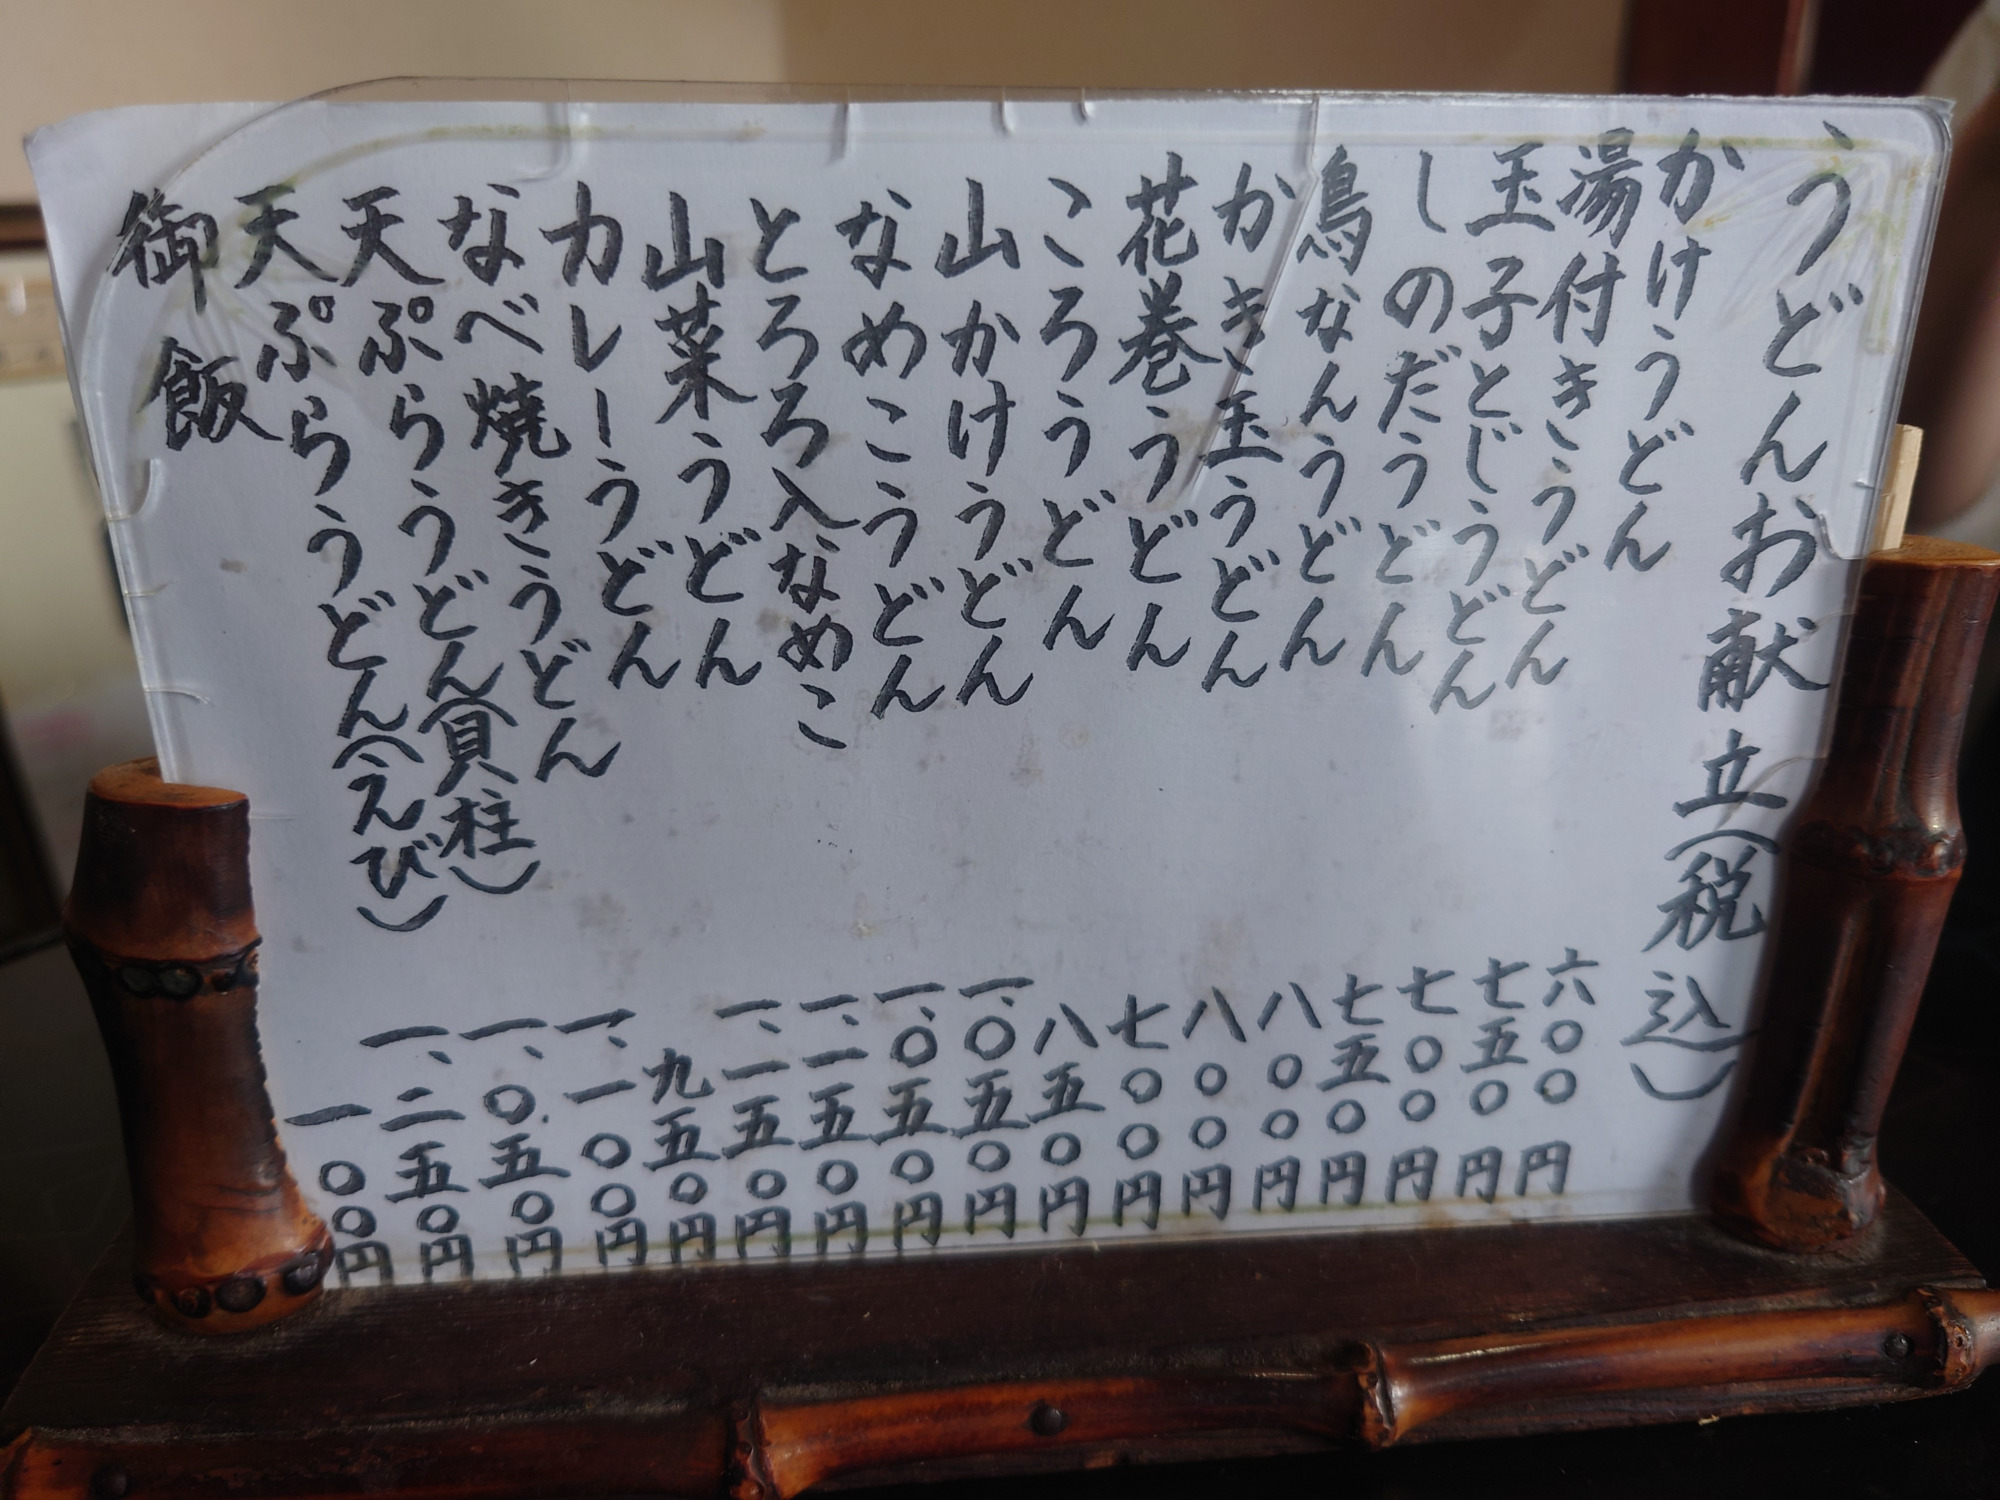 うどんお献立(税込)
かけうどん 六〇〇円
湯付きうどん 七五〇円
玉子とじうどん 七〇〇円
しのだうどん 七五〇円
鳥なんうどん 八〇〇円
かき玉うどん 八〇〇円
花巻うどん 七〇〇円
ころうどん 八五〇円
山かけうどん 一、〇五〇円
なめこうどん 一、〇五〇円
とろろ入なめこ 一、一五〇円
山菜うどん 一、一五〇円
カレーうどん 九五〇円
なべ焼きうどん 一、一〇〇円
天ぷらうどん(貝柱) 一、〇五〇円
天ぷらうどん(えび) 一、二五〇円
御飯 一〇〇円